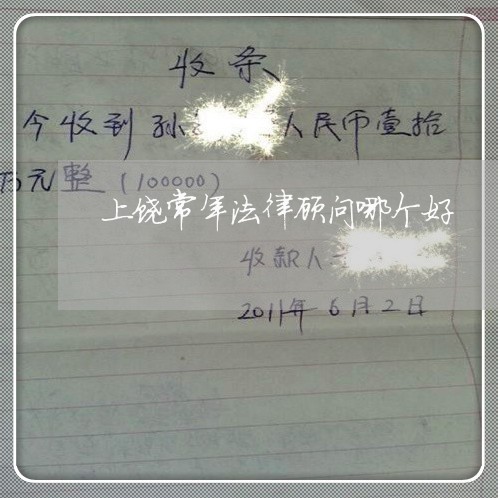 收条
今收到孙 人民币壹拾
万元整（100000）
上饶常年法律顾问哪个好
收款人
2011年6月2日